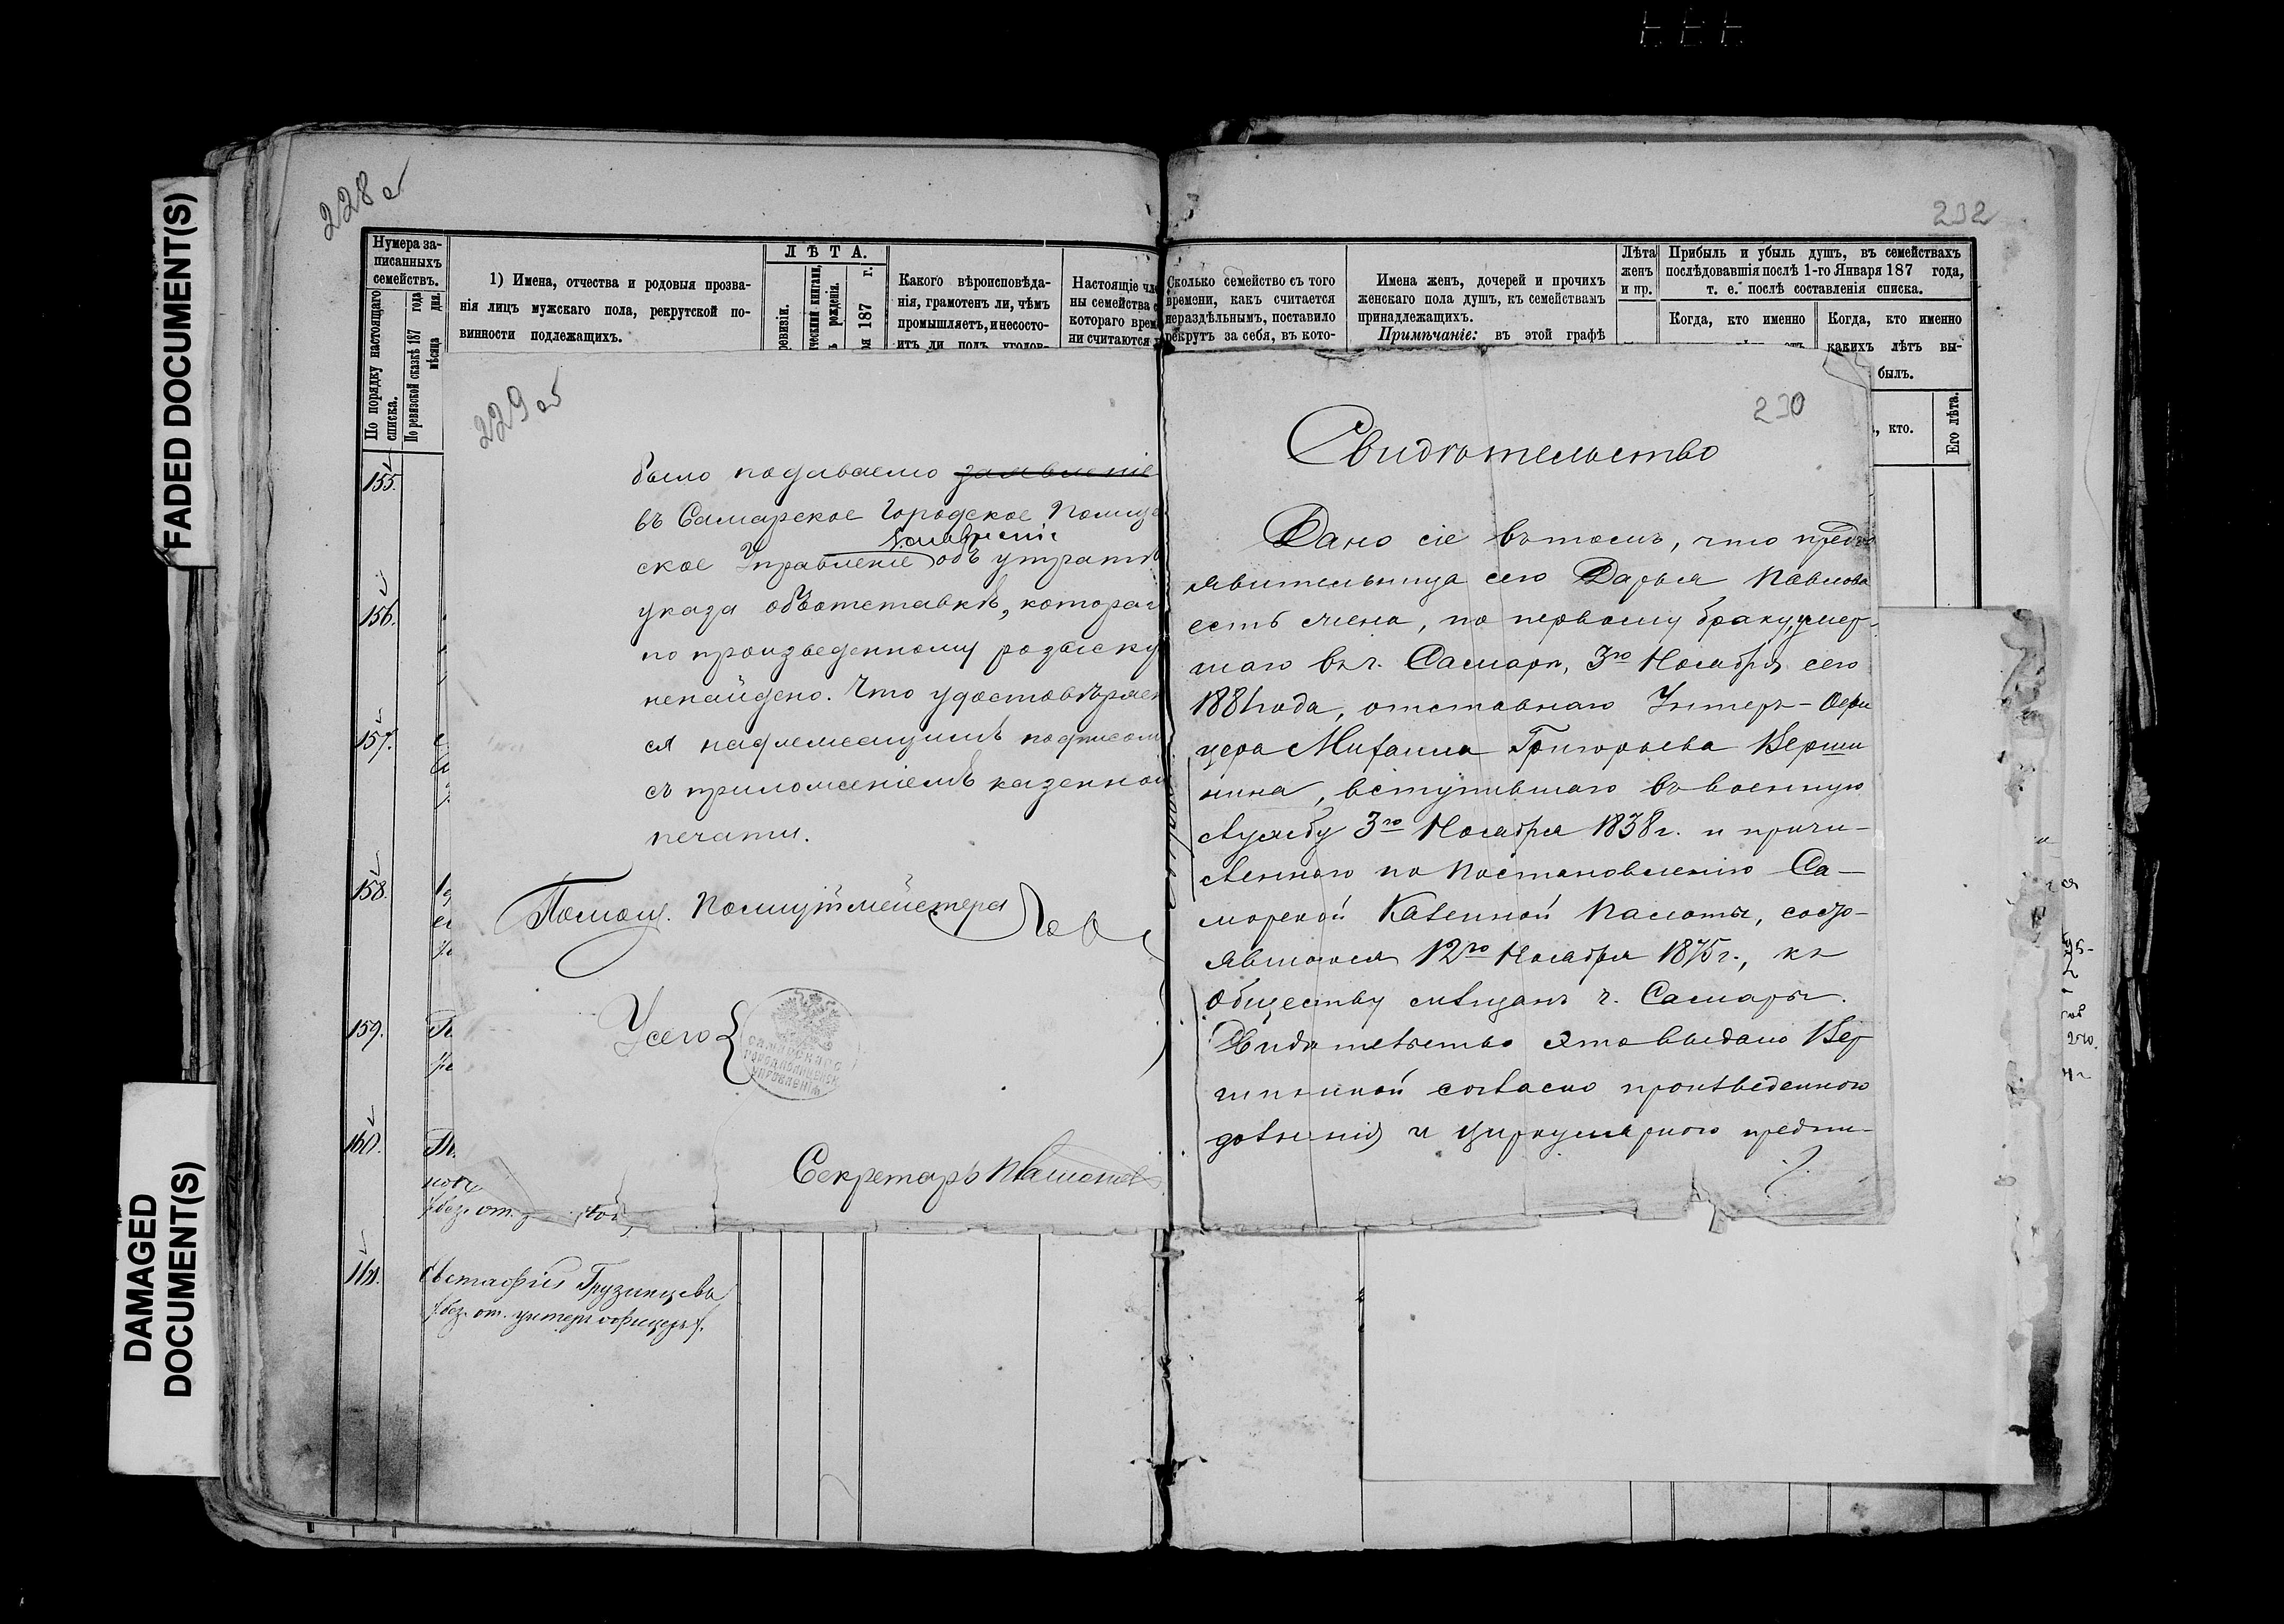 FADED DOCUMENT(S)
DAMAGED
DOCUMENT(S)
228 об
Нумера за-
писанныхъ
семействъ.
По порядку настоящаго
списка.
По ревизской сказкѣ 187 года
мѣсяца дня.
1) Имена, отчества и родовыя прозва-
нія лицъ мужскаго пола, рекрутской по-
винности подлежащихъ.
ЛѢТА.
рожденія.
187 г.
Какого вѣроисповѣда-
нія, грамотенъ ли, чѣмъ
промышляетъ, и несосто-
итъ ли подъ уголов-
Настоящіе чле
ны семейства с
котораго врем
ни считаются
155.
156.
157.
158.
159.
160.
161.
229 об
было подаваемо заявленіе
въ Самарское Городское Полице
заявленіе
ское Управленіе объ утратѣ
указа объ отставкѣ, котораг
по произведенному розыску
ненайдено. Что удостовѣряет
ся надлежащимъ подписом
съ приложеніемъ казенной
печати.
Помощ. Полицiймейстера
У сего
самарскаго
управленія
Секретарь
Евстафій Грузинцевъ
/без. от. унтеръ офицеръ/.
232
Сколько семейство съ того
времени, какъ считается
нераздѣльнымъ, поставило
рекрутъ за себя, въ кото-
Имена женъ, дочерей и прочихъ
женскаго пола душъ, къ семействамъ
принадлежащихъ.
Примѣчаніе: въ этой графѣ
Лѣта
женъ
и пр.
Прибыль и убыль душъ, въ семействахъ
послѣдовавшія послѣ 1-го Января 187 года,
т. е. послѣ составленія списка.
Когда, кто именно
Когда, кто именно
какихъ лѣтъ вы-
былъ.
, кто.
Его лѣта.
230
Свидѣтельство
Дано сіе въ томъ, что предъ
явительница сего Дарья Павлова
есть жена, по первому браку, умер-
шаго въ г. Самарѣ, 3го Ноября сего
1881 года, отставнаго Унтеръ-Офи
цера Михаила Григорьева Верши
нина, вступившаго въ военную
службу 3го Ноября 1838 г. и причи-
сленнаго по постановленію Са-
марской Казенной Палаты, состо-
явшагося 12го Ноября 1875 г., къ
обществу мѣщанъ г. Самары.
Свидѣтельство это выдано Вер
шининой согласно произведенного
дознанія и циркулярнаго предпи-